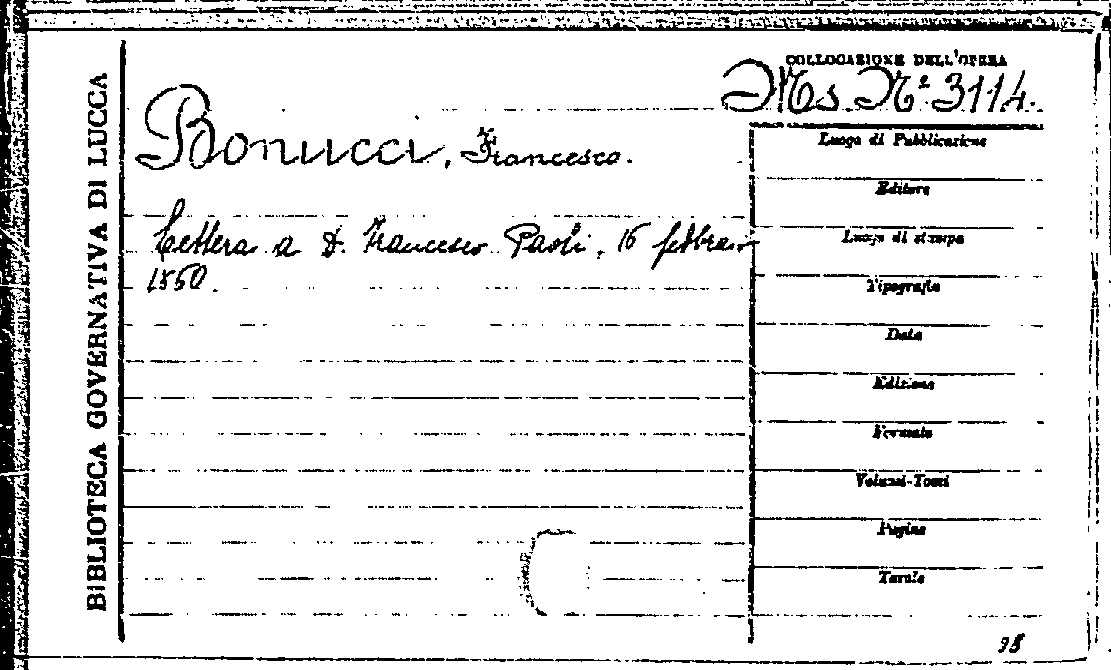 BIBLIOTECA GOVERNATIVA DI LUCCA
COLLOCAZIONE DELL'OPERA
Ms. N.° 3114.
Bonucci, Francesco.
Lettera a D. Francesco Paoli, 16 febbraio
1550.
Luogo di Pubblicazione
Editore
Luogo di stampa
Tipografia
Data
Edizione
Formato
Volumi-Tomi
Pagine
Tavole
98